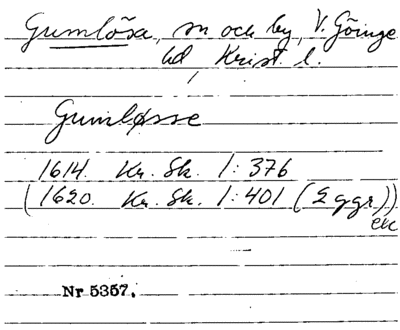 Gumlösa, sn och by, V. Göinge
hd Krist. l.
Gumløsse
1614. Kr. Sk. 1:376
(1620. Kr. Sk. 1:401 (2 ggr))
etc
Nr 5357.